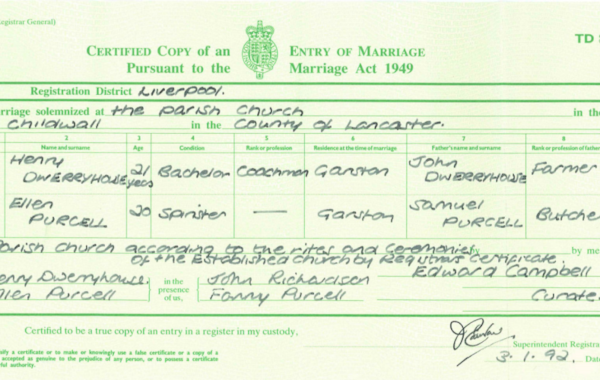 egistrar General)
TD
CERTIFIED COPY of an ENTRY OF MARRIAGE
Pursuant to the Marriage Act 1949
Registration District Liverpool.
rriage solemnized at the Parish Church in the
Childwall in the County of Lancaster.
2 3 4 5 6 7 8
Name and surname Age Condition Rank or profession Residence at the time of marriage Father's name and surname Rank or profession of father
Henry DWERRYHOUSE 21 years Bachelor Coachman Garston John DWERRYHOUSE Farmer
Ellen PURCELL 20 Spinster — Garston Samuel PURCELL Butche
Parish Church according to the rites and Ceremonies of the Established Church by Registrars Certificate. by me
enry Dwerryhouse. in the presence of us, John Richardson Edward Campbell
llen Purcell Fanny Purcell Curate
Certified to be a true copy of an entry in a register in my custody,
Superintendent Registra
3.1.92. Date
sify a certificate or to make or knowingly use a false certificate or a copy of a
accepted as genuine to the prejudice of any person, or to possess a certificate
ful authority.